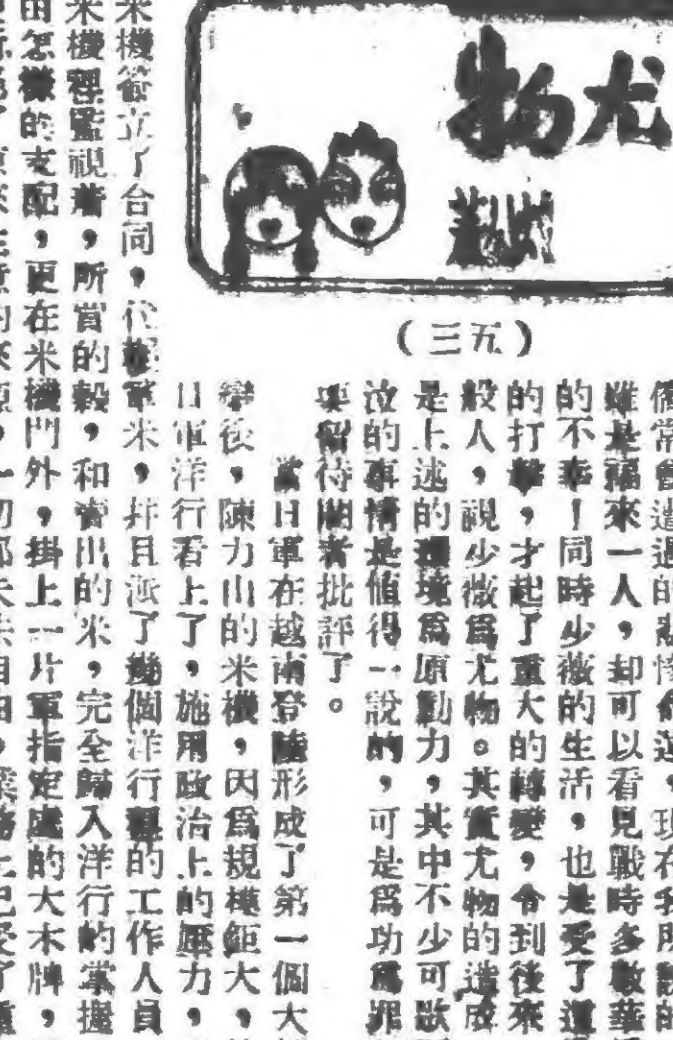 尤物
（五三）
常會遭遇的悲慘命運，現在我所說的
雖是福來一人，却可以看見戰時多數華
的不幸！同時少薇的生活，也是受了這
的打擊，才起了重大的轉變，令到後來
般人，視少薇爲尤物。其實尤物的造成
是上述的環境爲原動力，其中不少可歌
泣的事情是值得一說的，可是爲功爲罪
要留待閱者批評了。
當日軍在越南登陸形成了第一個大
變後，陳力山的米機，因爲規模鉅大，
日軍洋行看上了，施用政治上的壓力，
米機簽立了合同，代辦軍米，并且派了幾個洋行裡的工作人員
米機裡監視着，所買的穀，和賣出的米，完全歸入洋行的掌握
由怎樣的支配，更在米機門外，掛上一片軍指定處的大木牌，